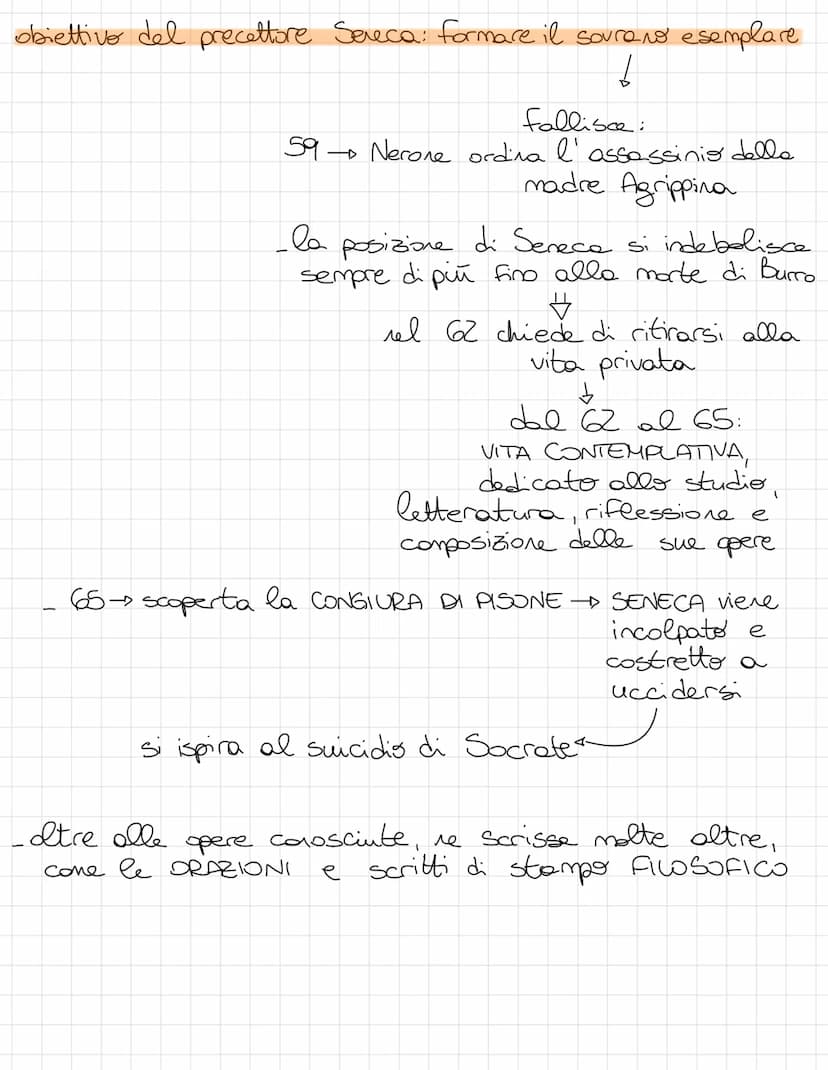 obiettivo del precettore Seneca: formare il sovrano esemplare
↓
fallisce:
59 → Nerone ordina l'assassinio della
madre Agrippina
- la posizione di Seneca si indebolisce
sempre di più fino alla morte di Burro
⇓
nel 62 chiede di ritirarsi alla
vita privata
↓
dal 62 al 65:
VITA CONTEMPLATIVA,
dedicato allo studio,
letteratura, riflessione e
composizione delle sue opere
- 65 → scoperta la CONGIURA DI PISONE → SENECA viene
incolpato e
costretto a
uccidersi
si ispira al suicidio di Socrate
- oltre alle opere conosciute, ne scrisse molte altre,
come le ORAZIONI e scritti di stampo FILOSOFICO